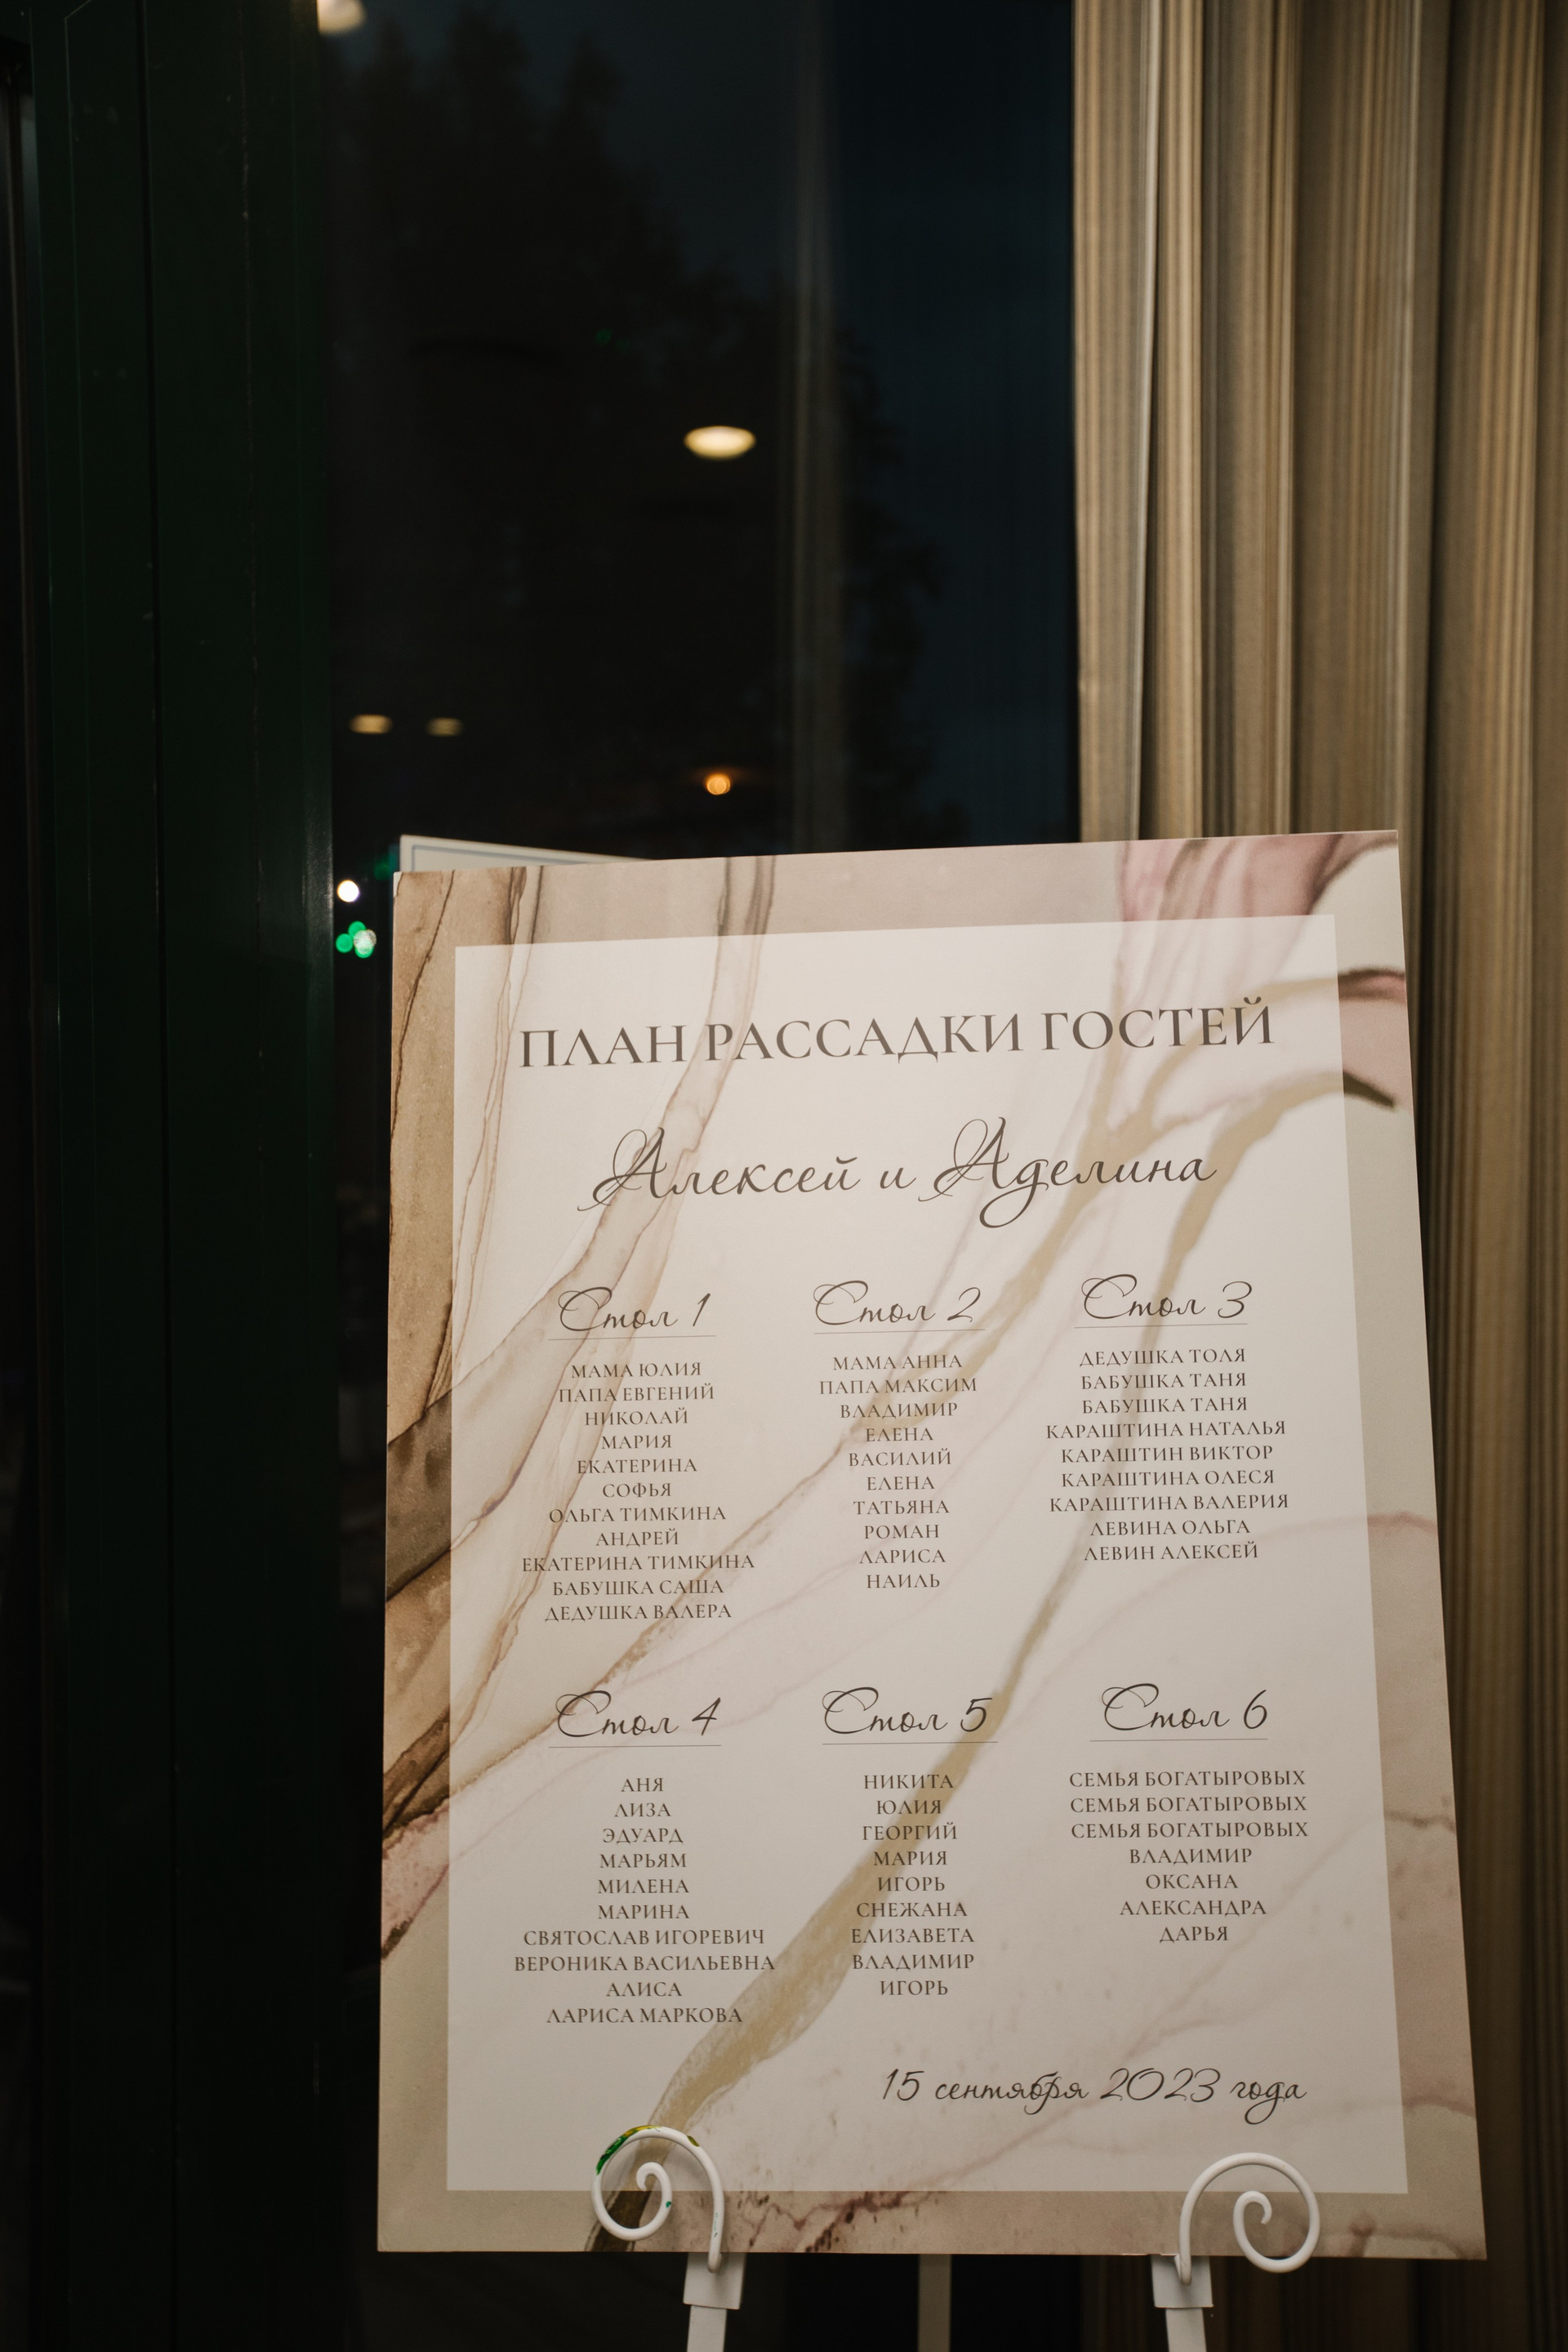 ПЛАН РАССАДКИ ГОСТЕЙ
Алексей и Аделина
Стол 1
МАМА ЮЛИЯ
ПАПА ЕВГЕНИЙ
НИКОЛАЙ
МАРИЯ
ЕКАТЕРИНА
СОФЬЯ
ОЛЬГА ТИМКИНА
АНДРЕЙ
ЕКАТЕРИНА ТИМКИНА
БАБУШКА САША
ДЕДУШКА ВАЛЕРА
Стол 2
МАМА АННА
ПАПА МАКСИМ
ВЛАДИМИР
ЕЛЕНА
ВАСИЛИЙ
ЕЛЕНА
ТАТЬЯНА
РОМАН
ЛАРИСА
НАИЛЬ
Стол 3
ДЕДУШКА ТОЛЯ
БАБУШКА ТАНЯ
БАБУШКА ТАНЯ
КАРАШТИНА НАТАЛЬЯ
КАРАШТИН ВИКТОР
КАРАШТИНА ОЛЕСЯ
КАРАШТИНА ВАЛЕРИЯ
ЛЕВИНА ОЛЬГА
ЛЕВИН АЛЕКСЕЙ
Стол 4
АНЯ
ЛИЗА
ЭДУАРД
МАРЬЯМ
МИЛЕНА
МАРИНА
СВЯТОСЛАВ ИГОРЕВИЧ
ВЕРОНИКА ВАСИЛЬЕВНА
АЛИСА
ЛАРИСА МАРКОВА
Стол 5
НИКИТА
ЮЛИЯ
ГЕОРГИЙ
МАРИЯ
ИГОРЬ
СНЕЖАНА
ЕЛИЗАВЕТА
ВЛАДИМИР
ИГОРЬ
Стол 6
СЕМЬЯ БОГАТЫРОВЫХ
СЕМЬЯ БОГАТЫРОВЫХ
СЕМЬЯ БОГАТЫРОВЫХ
ВЛАДИМИР
ОКСАНА
АЛЕКСАНДРА
ДАРЬЯ
15 сентября 2023 года